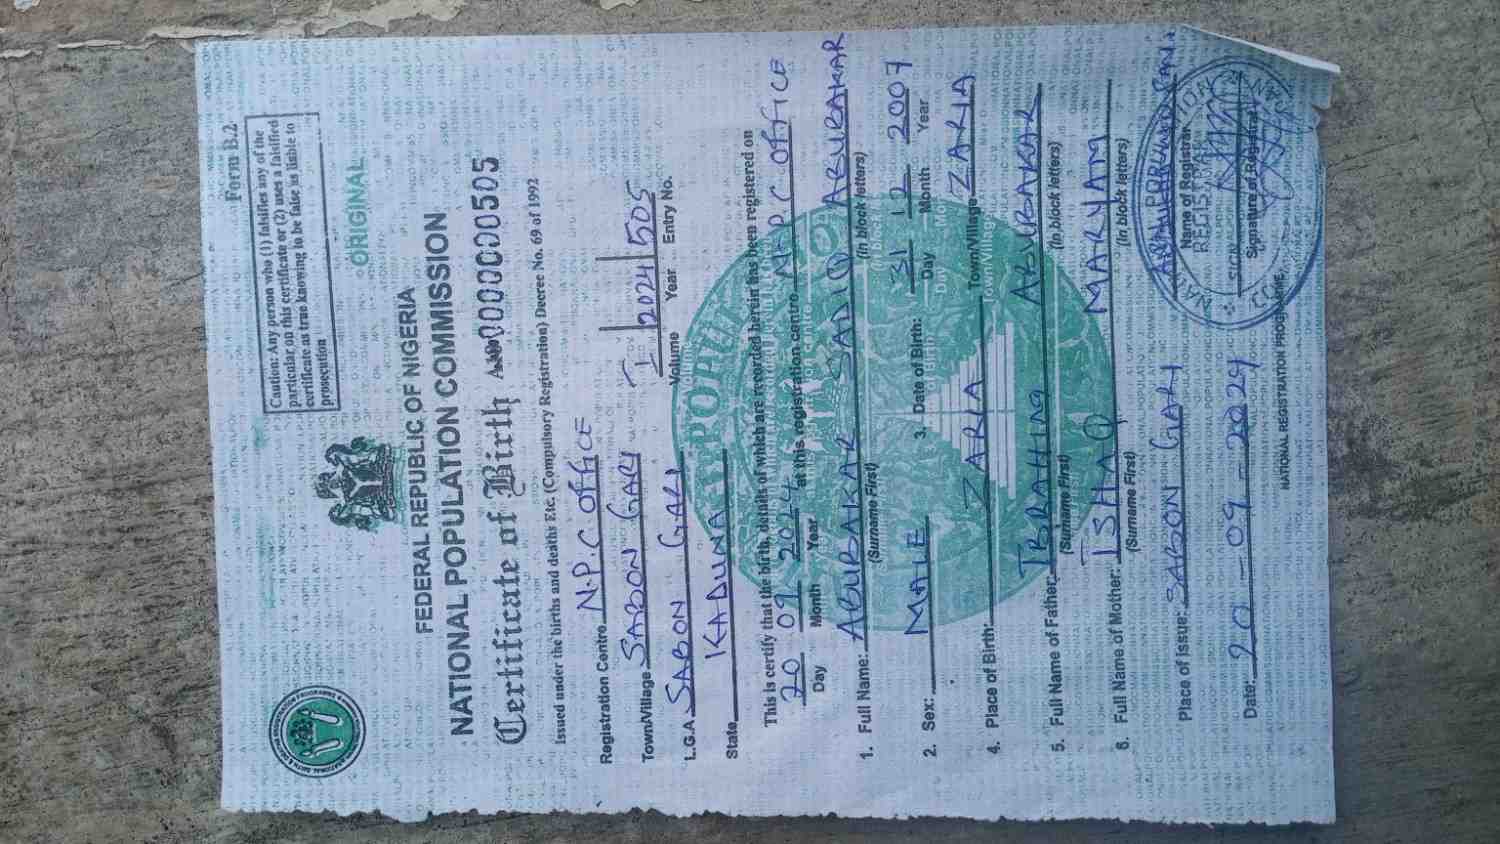 Form B.2
Caution: Any person who (1) falsifies any of the
particular on this certificate or (2) uses a falsified
certificate as true knowing to be false is liable to
prosecution
ORIGINAL
FEDERAL REPUBLIC OF NIGERIA
NATIONAL POPULATION COMMISSION
Certificate of Birth 0000000505
Issued under the births and deaths Etc. (Compulsory Registration) Decree No. 69 of 1992
Registration Centre N.P.C OFFICE
Town/Village SABON GARI I 2024 505
Volume Year Entry No.
L.G.A SABON GARI
State KADUNA
This is certify that the birth, details of which are recorded herein has been registered on
20 09 2024 at this registration centre N.P.C OFFICE
Day Month Year
1. Full Name: ABUBAKAR SADIQ ABUBAKAR
(Surname First) (In block letters)
2. Sex: MALE 3. Date of Birth: 31 12 2007
Day Month Year
4. Place of Birth: ZARIA Town/Village ZARIA
5. Full Name of Father: IBRAHIM ABUBAKAR
(Surname First) (In block letters)
6. Full Name of Mother: ISHAQ MARYAM
(Surname First) (In block letters)
Place of issue: SABON GARI
Name of Registrar
REGISTRAR
SIGN
Date: 20-09-2024 Signature of Registrar
NATIONAL REGISTRATION PROGRAMME